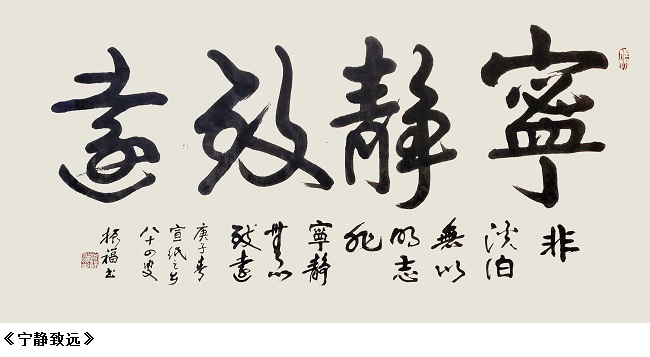 寧静致遠
非
淡泊
無以
明志
非
寧静
無以
致遠
庚子春
宣紙之乡
八十四叟
振福书
《宁静致远》